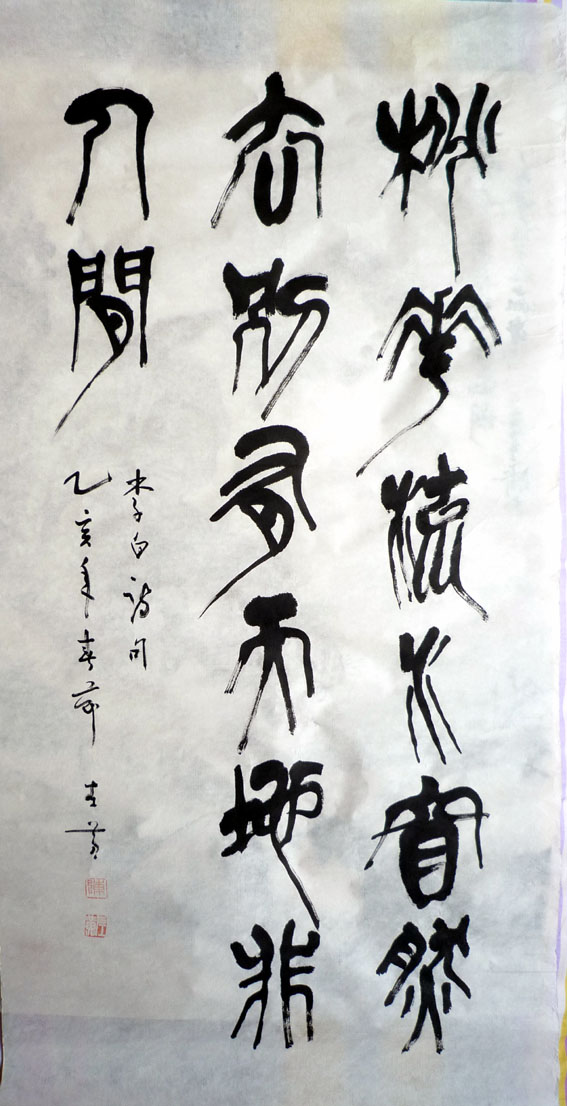 桃花流水窅然
去別有天地非
人間
李白詩句
乙亥年春節